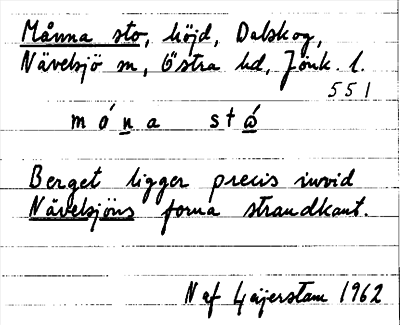 Månna sto, höjd, Dalskog,
Nävelsjö sn, Östra hd, Jönk. l.
551
mó̱na stó̱
Berget ligger precis invid
Nävelsjöns forna strandkant.
N af Gäijerstam 1962